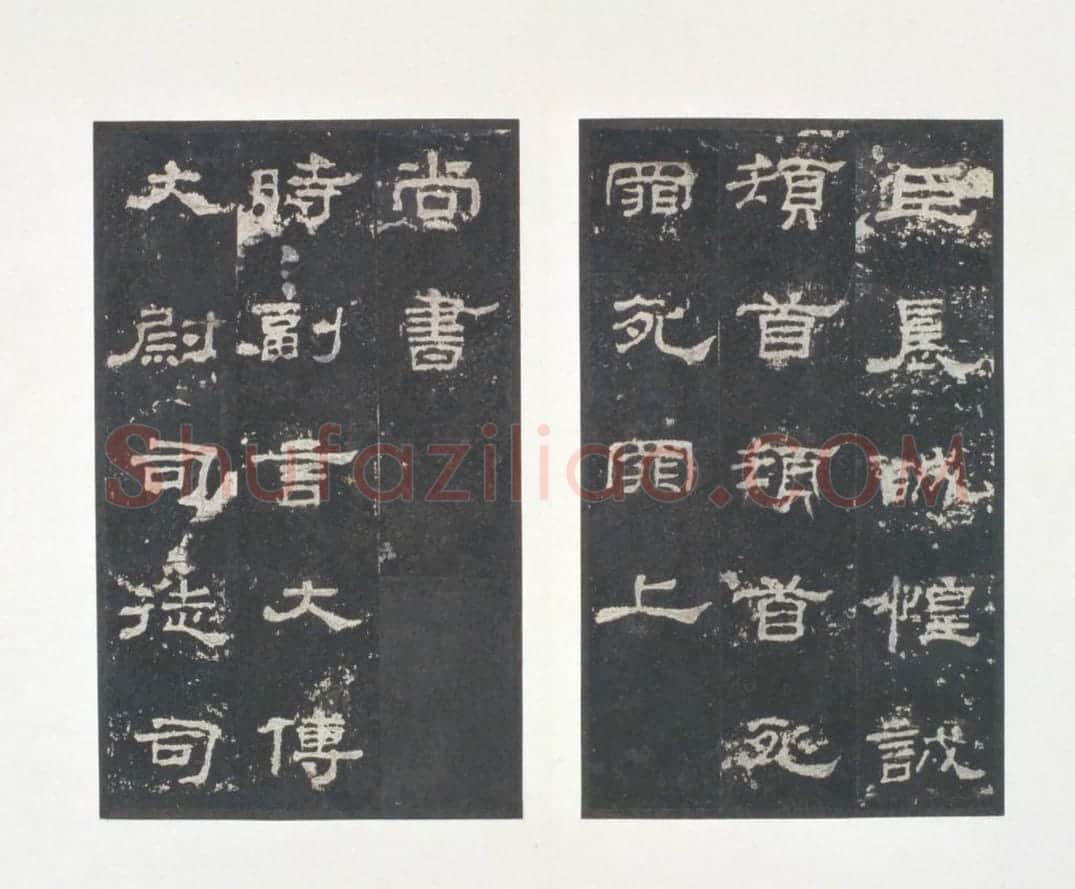 臣晨誠惶誠
頓首頓首死
罪死罪上
尚書
時副言大傅
大尉司徒司
Shufaziliao.COM